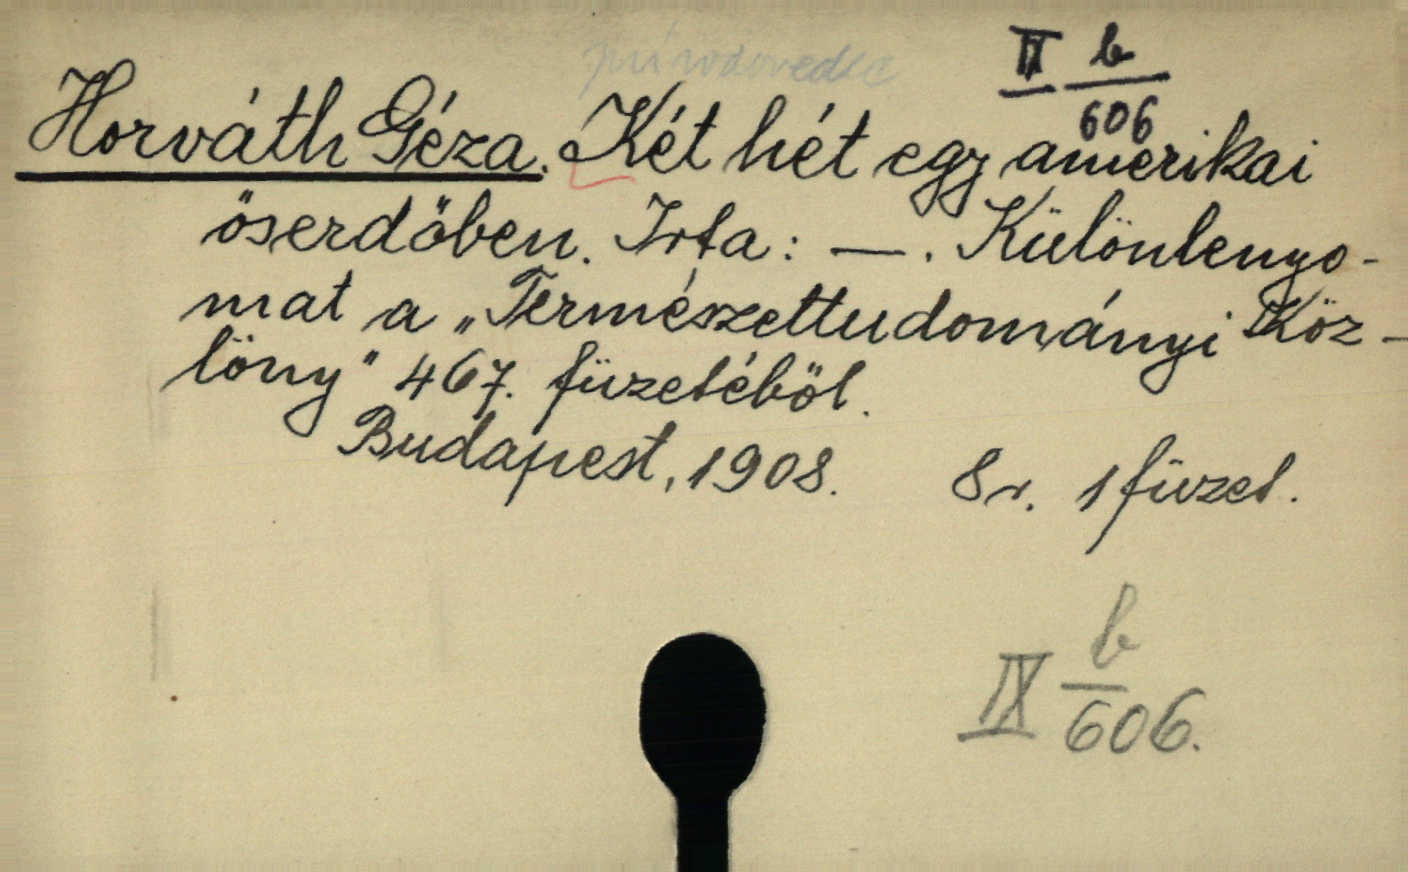 přirodovedec
IX b
606
Horváth Géza. Két hét egy amerikai
öserdöben. Irta: —. Különlenyo-
mat a „Természettudományi Köz-
löny" 467. füzetéböl.
Budapest, 1908. 8r. 1 füzet.
IX b
606.